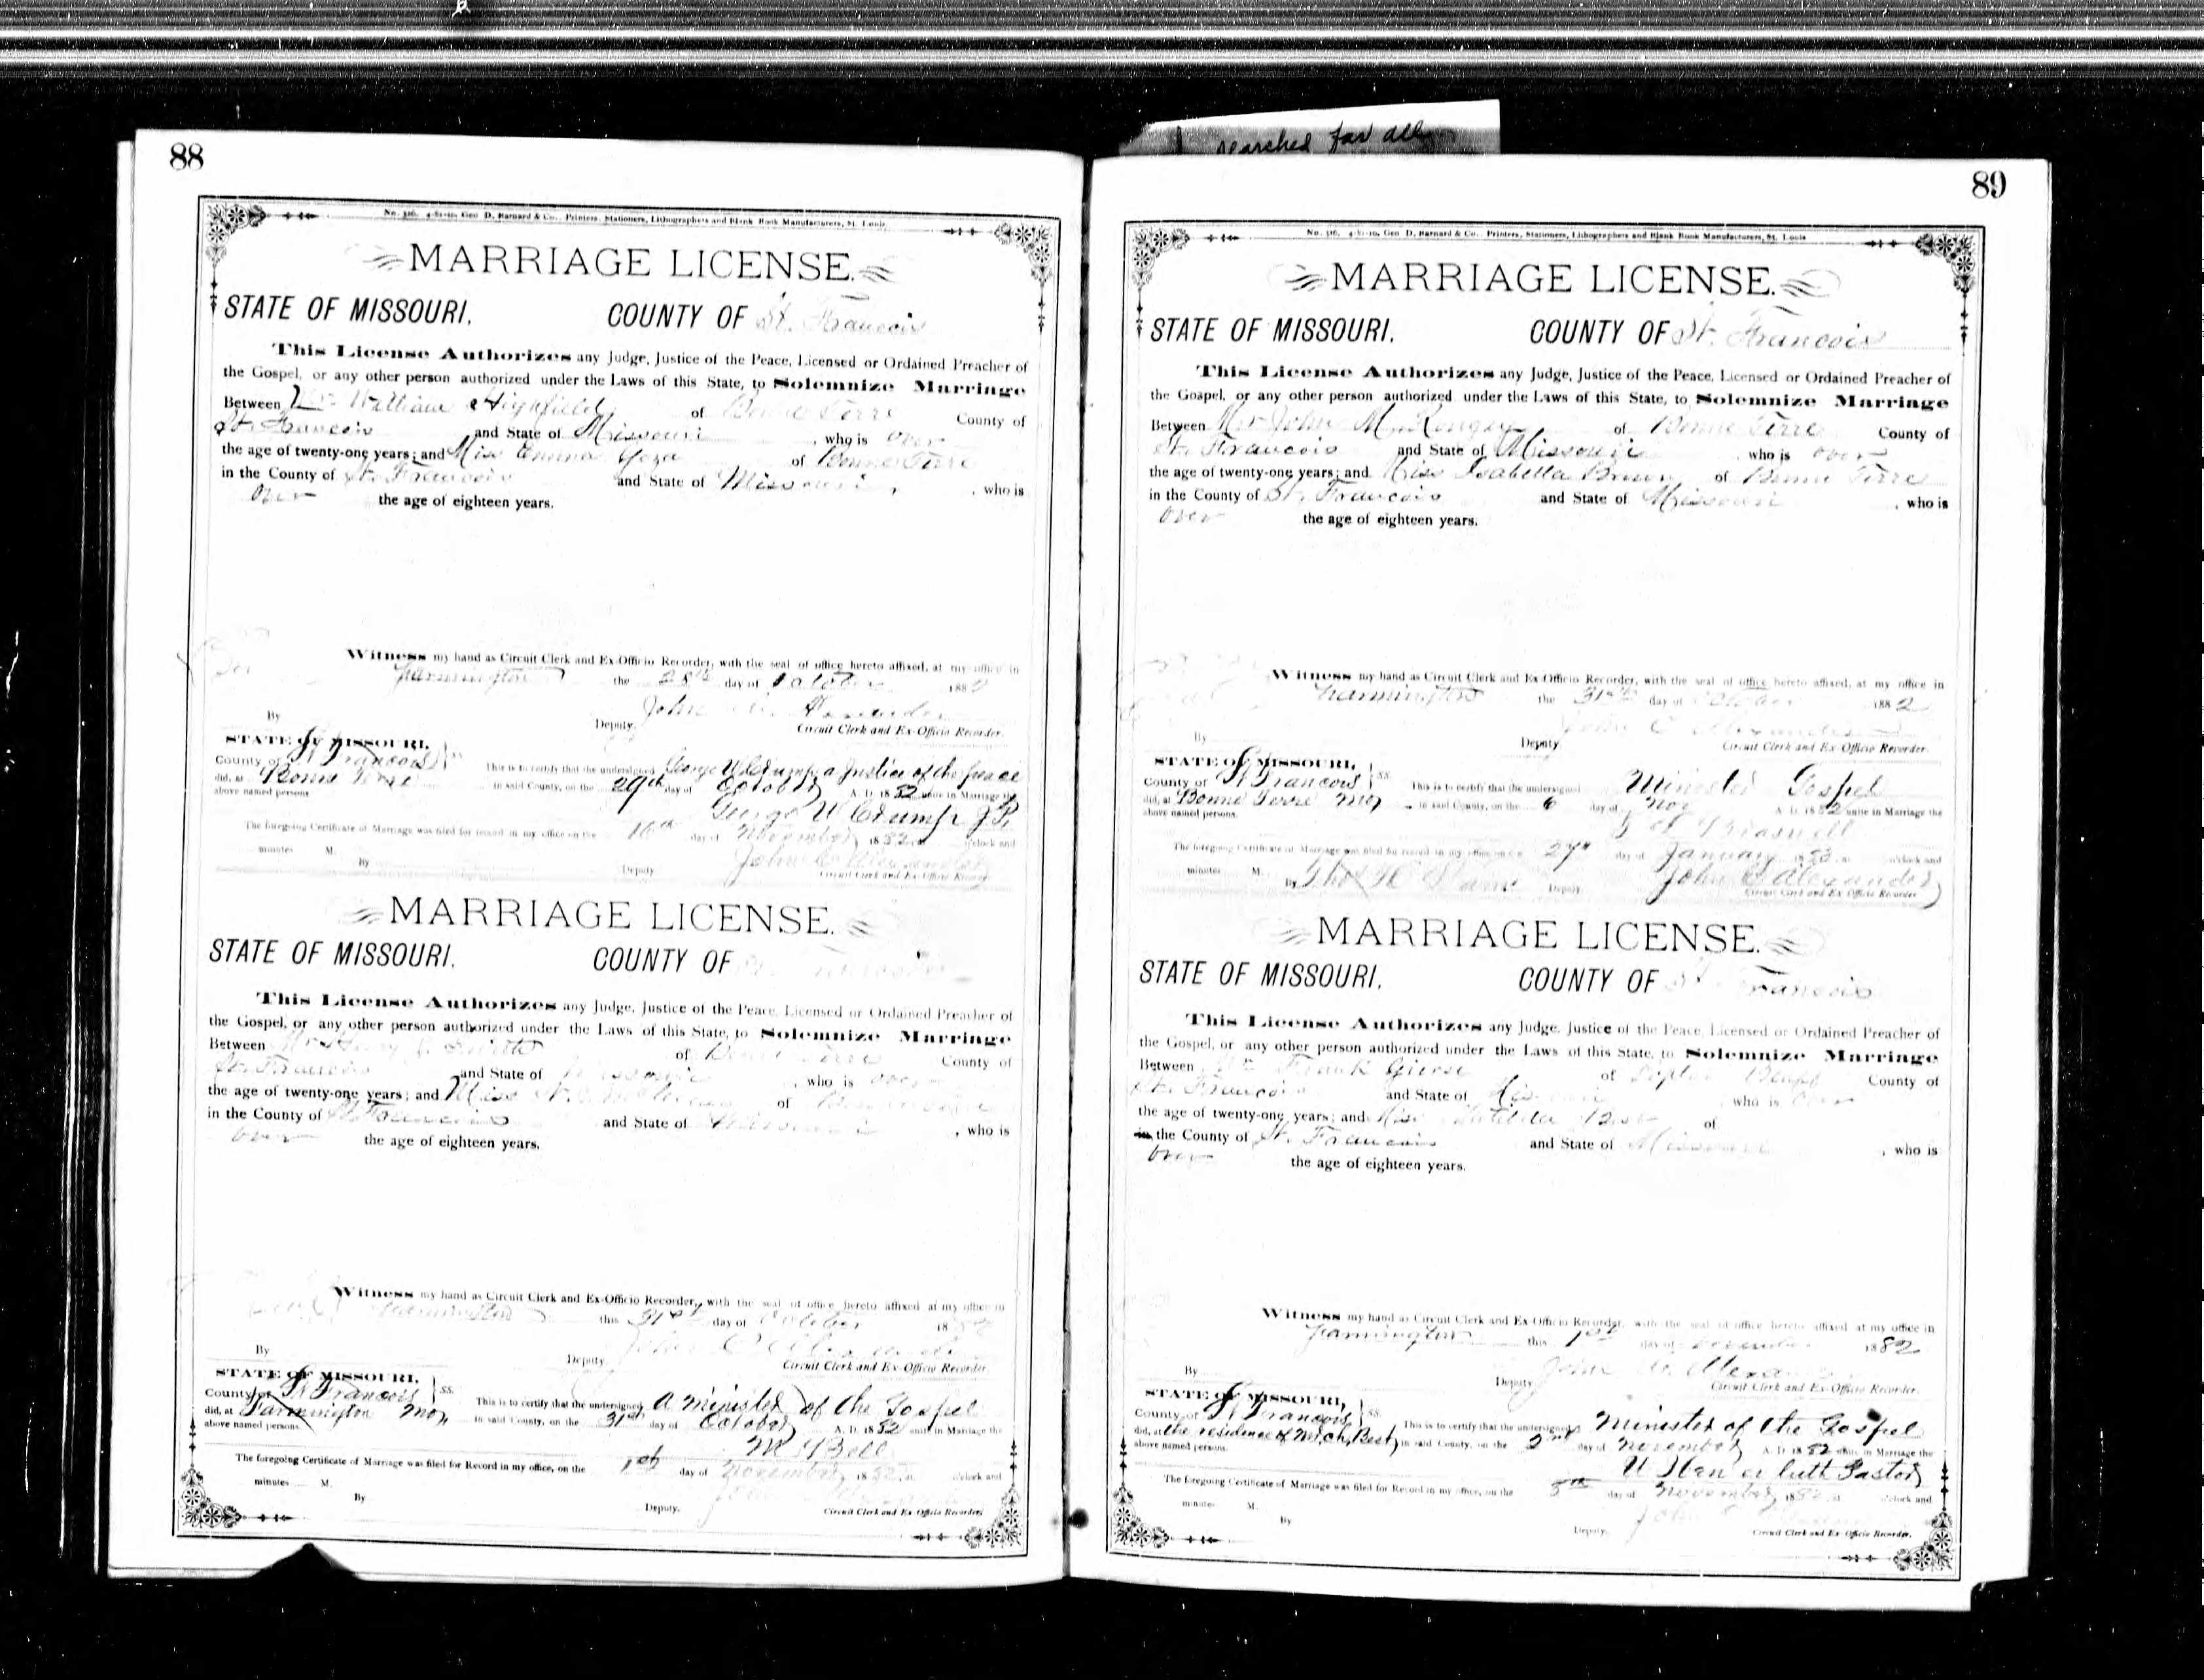 searched for all
88
No. 316. 4-81-10. Geo D. Barnard & Co., Printers, Stationers, Lithographers and Blank Book Manufacturers, St. Louis
MARRIAGE LICENSE.
STATE OF MISSOURI. COUNTY OF St. Francois
This License Authorizes any Judge, Justice of the Peace, Licensed or Ordained Preacher of
the Gospel, or any other person authorized under the Laws of this State, to Solemnize Marriage
Between William Highfield of Bonne Terre County of
St. Francois and State of Missouri, who is over
the age of twenty-one years; and Miss Emma of Bonne Terre
in the County of St. Francois and State of Missouri, who is
over the age of eighteen years.
Witness my hand as Circuit Clerk and Ex-Officio Recorder, with the seal of office hereto affixed, at my office in
Farmington the 28th day of October 1882
John
By Deputy. Circuit Clerk and Ex-Officio Recorder.
STATE OF MISSOURI,
County of St Francois ss. This is to certify that the undersigned George W Crump a Justice of the peace
did, at Bonne Terre in said County, on the 29th day of October A. D. 1882 unite in Marriage the
above named persons. George W Crump J P.
The foregoing Certificate of Marriage was filed for record in my office on the 16th day of November 1882 at o'clock and
minutes M. John C Alexander
By Deputy Circuit Clerk and Ex-Officio Recorder
MARRIAGE LICENSE.
STATE OF MISSOURI. COUNTY OF St. Francois
This License Authorizes any Judge, Justice of the Peace, Licensed or Ordained Preacher of
the Gospel, or any other person authorized under the Laws of this State, to Solemnize Marriage
Between Mr Henry Smith of Bonne Terre County of
St. Francois and State of Missouri, who is over
the age of twenty-one years; and Miss of
in the County of St Francois and State of Missouri, who is
over the age of eighteen years.
Witness my hand as Circuit Clerk and Ex-Officio Recorder, with the seal of office hereto affixed at my office in
Farmington this 31st day of October 18
John C Alexander
By Deputy Circuit Clerk and Ex-Officio Recorder.
STATE OF MISSOURI,
County of St Francois ss. This is to certify that the undersigned A minister of the Gospel
did, at Farmington Mo in said County, on the 31st day of October A. D. 1882 unite in Marriage the
above named persons. Bell
The foregoing Certificate of Marriage was filed for Record in my office, on the 1st day of November 1882 at o'clock and
minutes M.
By Deputy. Circuit Clerk and Ex-Officio Recorder.
89
No. 316. 4-81-10. Geo D. Barnard & Co. Printers, Stationers, Lithographers and Blank Book Manufacturers, St. Louis
MARRIAGE LICENSE.
STATE OF MISSOURI. COUNTY OF St. Francois
This License Authorizes any Judge, Justice of the Peace, Licensed or Ordained Preacher of
the Gospel, or any other person authorized under the Laws of this State, to Solemnize Marriage
Between Mr John M. of Bonne Terre County of
St. Francois and State of Missouri, who is over
the age of twenty-one years; and Miss Isabella of Bonne Terre
in the County of St. Francois and State of Missouri, who is
over the age of eighteen years.
Witness my hand as Circuit Clerk and Ex-Officio Recorder, with the seal of office hereto affixed, at my office in
Farmington the 31st day of October 1882
John C Alexander
By Deputy Circuit Clerk and Ex-Officio Recorder.
STATE OF MISSOURI,
County of St Francois ss. This is to certify that the undersigned Minister Gospel
did, at Bonne Terre Mo in said County, on the 6 day of Nov A. D. 1882 unite in Marriage the
above named persons. Braswell
The foregoing Certificate of Marriage was filed for record in my office on the 27th day of January at o'clock and
minutes M. By Deputy John C Alexander
Circuit Clerk and Ex Officio Recorder
MARRIAGE LICENSE.
STATE OF MISSOURI. COUNTY OF St Francois
This License Authorizes any Judge, Justice of the Peace, Licensed or Ordained Preacher of
the Gospel, or any other person authorized under the Laws of this State, to Solemnize Marriage
Between Frank Giese of County of
St. Francois and State of who is over
the age of twenty-one years; and Miss Matilda Best of
in the County of St. Francois and State of Missouri, who is
over the age of eighteen years.
Witness my hand as Circuit Clerk and Ex-Officio Recorder, with the seal of office hereto affixed at my office in
Farmington this 1st day of November 1882
John C. Alexander
By Deputy Circuit Clerk and Ex-Officio Recorder.
STATE OF MISSOURI,
County of St Francois ss. This is to certify that the undersigned Minister of the Gospel
did, at the residence of Mr Ch. Best in said County, on the 2nd day of November A. D. 1882 unite in Marriage the
above named persons. Pastor
The foregoing Certificate of Marriage was filed for Record in my office, on the 8th day of November 1882 at o'clock and
minutes M.
By Deputy. Circuit Clerk and Ex-Officio Recorder.